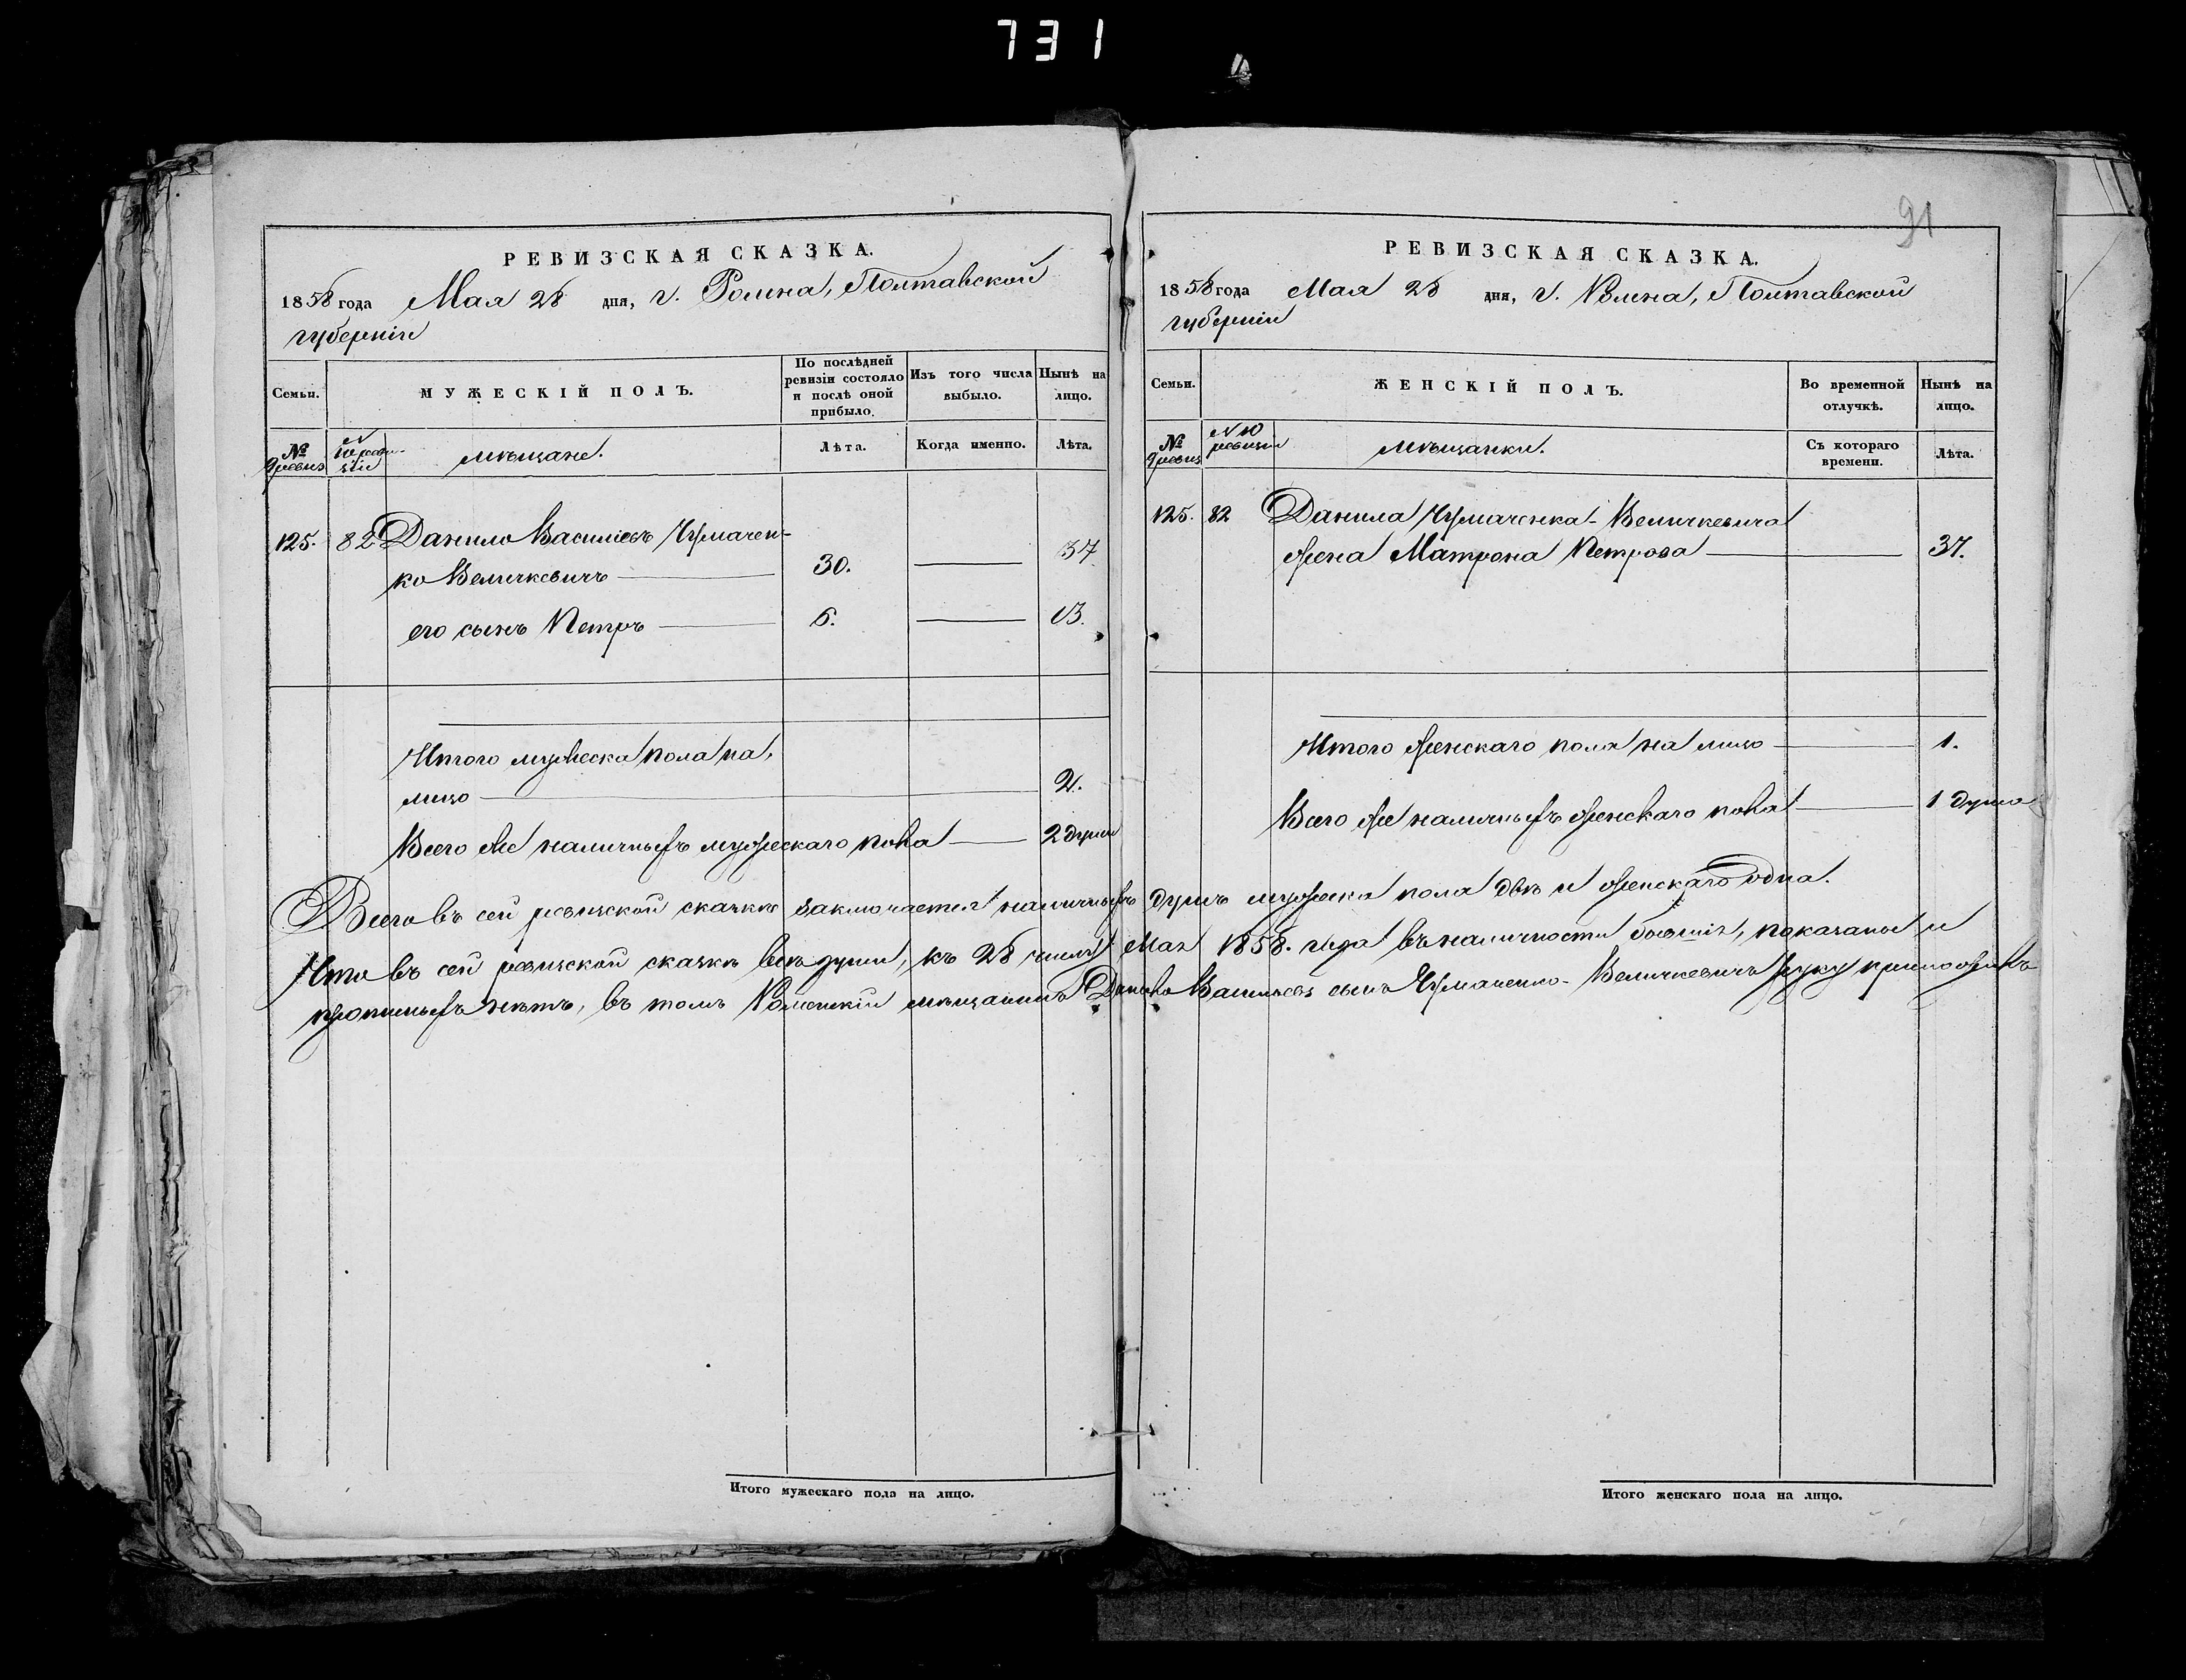 731
РЕВИЗСКАЯ СКАЗКА.
1858 года Мая 28 дня, г. Ромна, Полтавской
губерніи
Семьи.
МУЖЕСКІЙ ПОЛЪ.
По послѣдней ревизіи состояло и послѣ оной прибыло.
Изъ того числа выбыло.
Нынѣ на лицо.
№ 9 ревиз
№ 10 ревизіи
мѣщане.
Лѣта.
Когда именно.
Лѣта.
125. 82 Данило Васильевъ Чумачен-
ко Величкевичъ 30. 37
его сынъ Петръ 6. 13.
Итого мужеска пола на
лицо 2.
Всего же наличныхъ мужескаго пола 2 души
Итого мужескаго пола на лицо.
91
РЕВИЗСКАЯ СКАЗКА.
1858 года Мая 28 дня, г. Ромна, Полтавской
губерніи
Семьи.
ЖЕНСКІЙ ПОЛЪ.
Во временной отлучкѣ.
Нынѣ на лицо.
№ 9 ревиз
№ 10 ревизіи
мѣщанки.
Съ котораго времени.
Лѣта.
125. 82 Данила Чумаченка-Величкевича
жена Матрона Петрова 37.
Итого женскаго пола на лицо 1.
Всего же наличныхъ женскаго пола 1 душа
Всего въ сей ревизской сказкѣ заключается наличныхъ душъ мужеска пола двѣ и женскаго одна.
Что въ сей ревизской сказкѣ всѣ души, къ 28 числу Мая 1858. года въ наличности бывшія, показаны и
прописныхъ нѣтъ, въ томъ Роменскій мѣщанинъ Данило Васильевъ сынъ Чумаченко-Величкевичъ руку приложилъ
Итого женскаго пола на лицо.